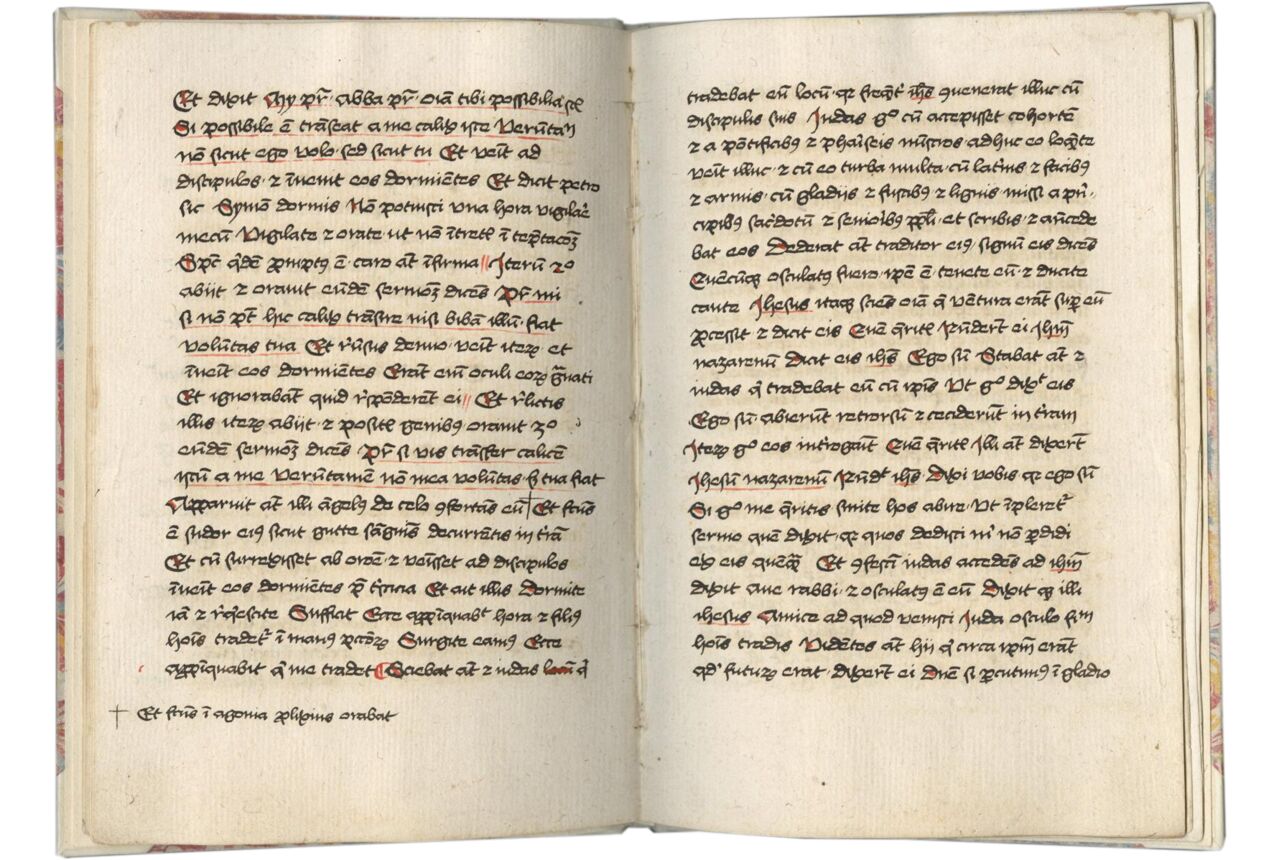 Et dixit My pr̄ · abba pr̄ · oīa tibi possibilia sūt
Si possibile ē trāseat a me calix iste Verūtn̄
nō sicut ego volo · sed sicut tu Et veīt ad
discipulos · ⁊ īvenit eos dormiētes Et dicit petro
sic Symon dormis Nō potuisti una hora vigilar̄e
mecū Vigilate ⁊ orate · ut nō ītretꝭ ī tēptacoꝫ
Spc̄ qͥdē ꝓmptꝰ ē · caro at̄ īfirma || Iterū 2º
abiit ⁊ oravit eūdē sermoꝫ dicēs Pr̄ mi
si nō pt̄ hic calix trāsire nisi bibā illū · fiat
volūtas tua Et rursus denuo · veīt iteꝝ · et
īveīt eos dormiētes Erāt em̄ oculi eoꝝ gͣvati
Et ignorabāt quid rn̄derēt ei || Et rͤlictis
illis iteꝝ abiit · ⁊ positꝭ genibꝰ oravit 3º
eūdē sermoꝫ dicēs Pr̄ si vis trāsfer calicē
istū a me Verūtamē nō mea volūtas sꝫ tua fiat
Apparuit at̄ illi āgelꝰ de celo ꝯfortās eū † Et fcūs
ē sudor eiꝰ sicut gutte sāguīs decurrētis in tͬrā
Et cū surrexisset ab oroē · ⁊ veīsset ad discipulos
īveīt eos dormiētes p̄ tͬsticia Et ait illis Dormite
iā ⁊ rͤqͥescite Sufficit Ecce apꝓīquabᵗ hora ⁊ filiꝰ
hoīs tradetͬ ī manꝰ pctōꝝ Surgite eamꝰ Ecce
apꝓīquabit qͥ me tradet ¶ Sciebat at̄ ⁊ iudas locū qͥ
† Et fcūs ī agonia ꝓlixius orabat
tradebat eū locū · qꝛ freqn̄tͬ ih̄s ꝯvenerat illuc cū
discipulis suis Iudas gͦ cū accepisset cohortē
⁊ a pōtificibꝰ ⁊ pharīseis mīstros · adhuc eo loqn̄te
veīt illuc · ⁊ cū eo turba multa · cū latnis ⁊ facibꝰ
⁊ armis · cū gladijs ⁊ fustibꝰ ⁊ lignis missi a pͥn-
cipibꝰ sac̄dotū ⁊ seniorībꝰ ppl̄i · et scribis · ⁊ āncede
bat eos Dederat at̄ traditor eiꝰ · signū eis dicēs
Quēcūqꝫ osculatꝰ fuero · ip̄e ē · tenete eū · ⁊ ducite
caute Ihesus itaqꝫ sciēs oīa q̄ vētura erāt sup̄ eū
ꝓcessit ⁊ dicit eis Quē qͥritꝭ Rn̄derūt ei ih̄m
nazarenū Dicit eis ih̄s Ego sū Stabat at̄ ⁊
iudas qͥ tradebat eū cū ip̄is Ut gͦ dixᵗ eis
Ego sū · abierūt retrorsū ⁊ ceciderūt in tͬram
Iteꝝ gͦ eos introgāit Quē qͥritꝭ Illi at̄ dixerūt
Ihesū nazarenū Rn̄dᵗ ih̄s Dixi vobis qꝛ ego sū
Si gͦ me qͥritis sinite hos abire · Ut īpleretͬ
sermo quē dixit · qꝛ quos dedisti mͥ nō ꝑdidi
ex eis quēqͣ Et ꝯfestī iudas accedēs ad ih̄m
dixit ave rabbi · ⁊ osculatꝰ ē eū Dixit qꝫ illi
ihesus Amice ad quod venisti Iuda osculo fm̄
hoīs tradis Vidētes at̄ hii qͥ circa ip̄m erāt
qd̓ futuꝝ erat · dixerūt ei Dn̄e si ꝑcutimꝰ ī gladio